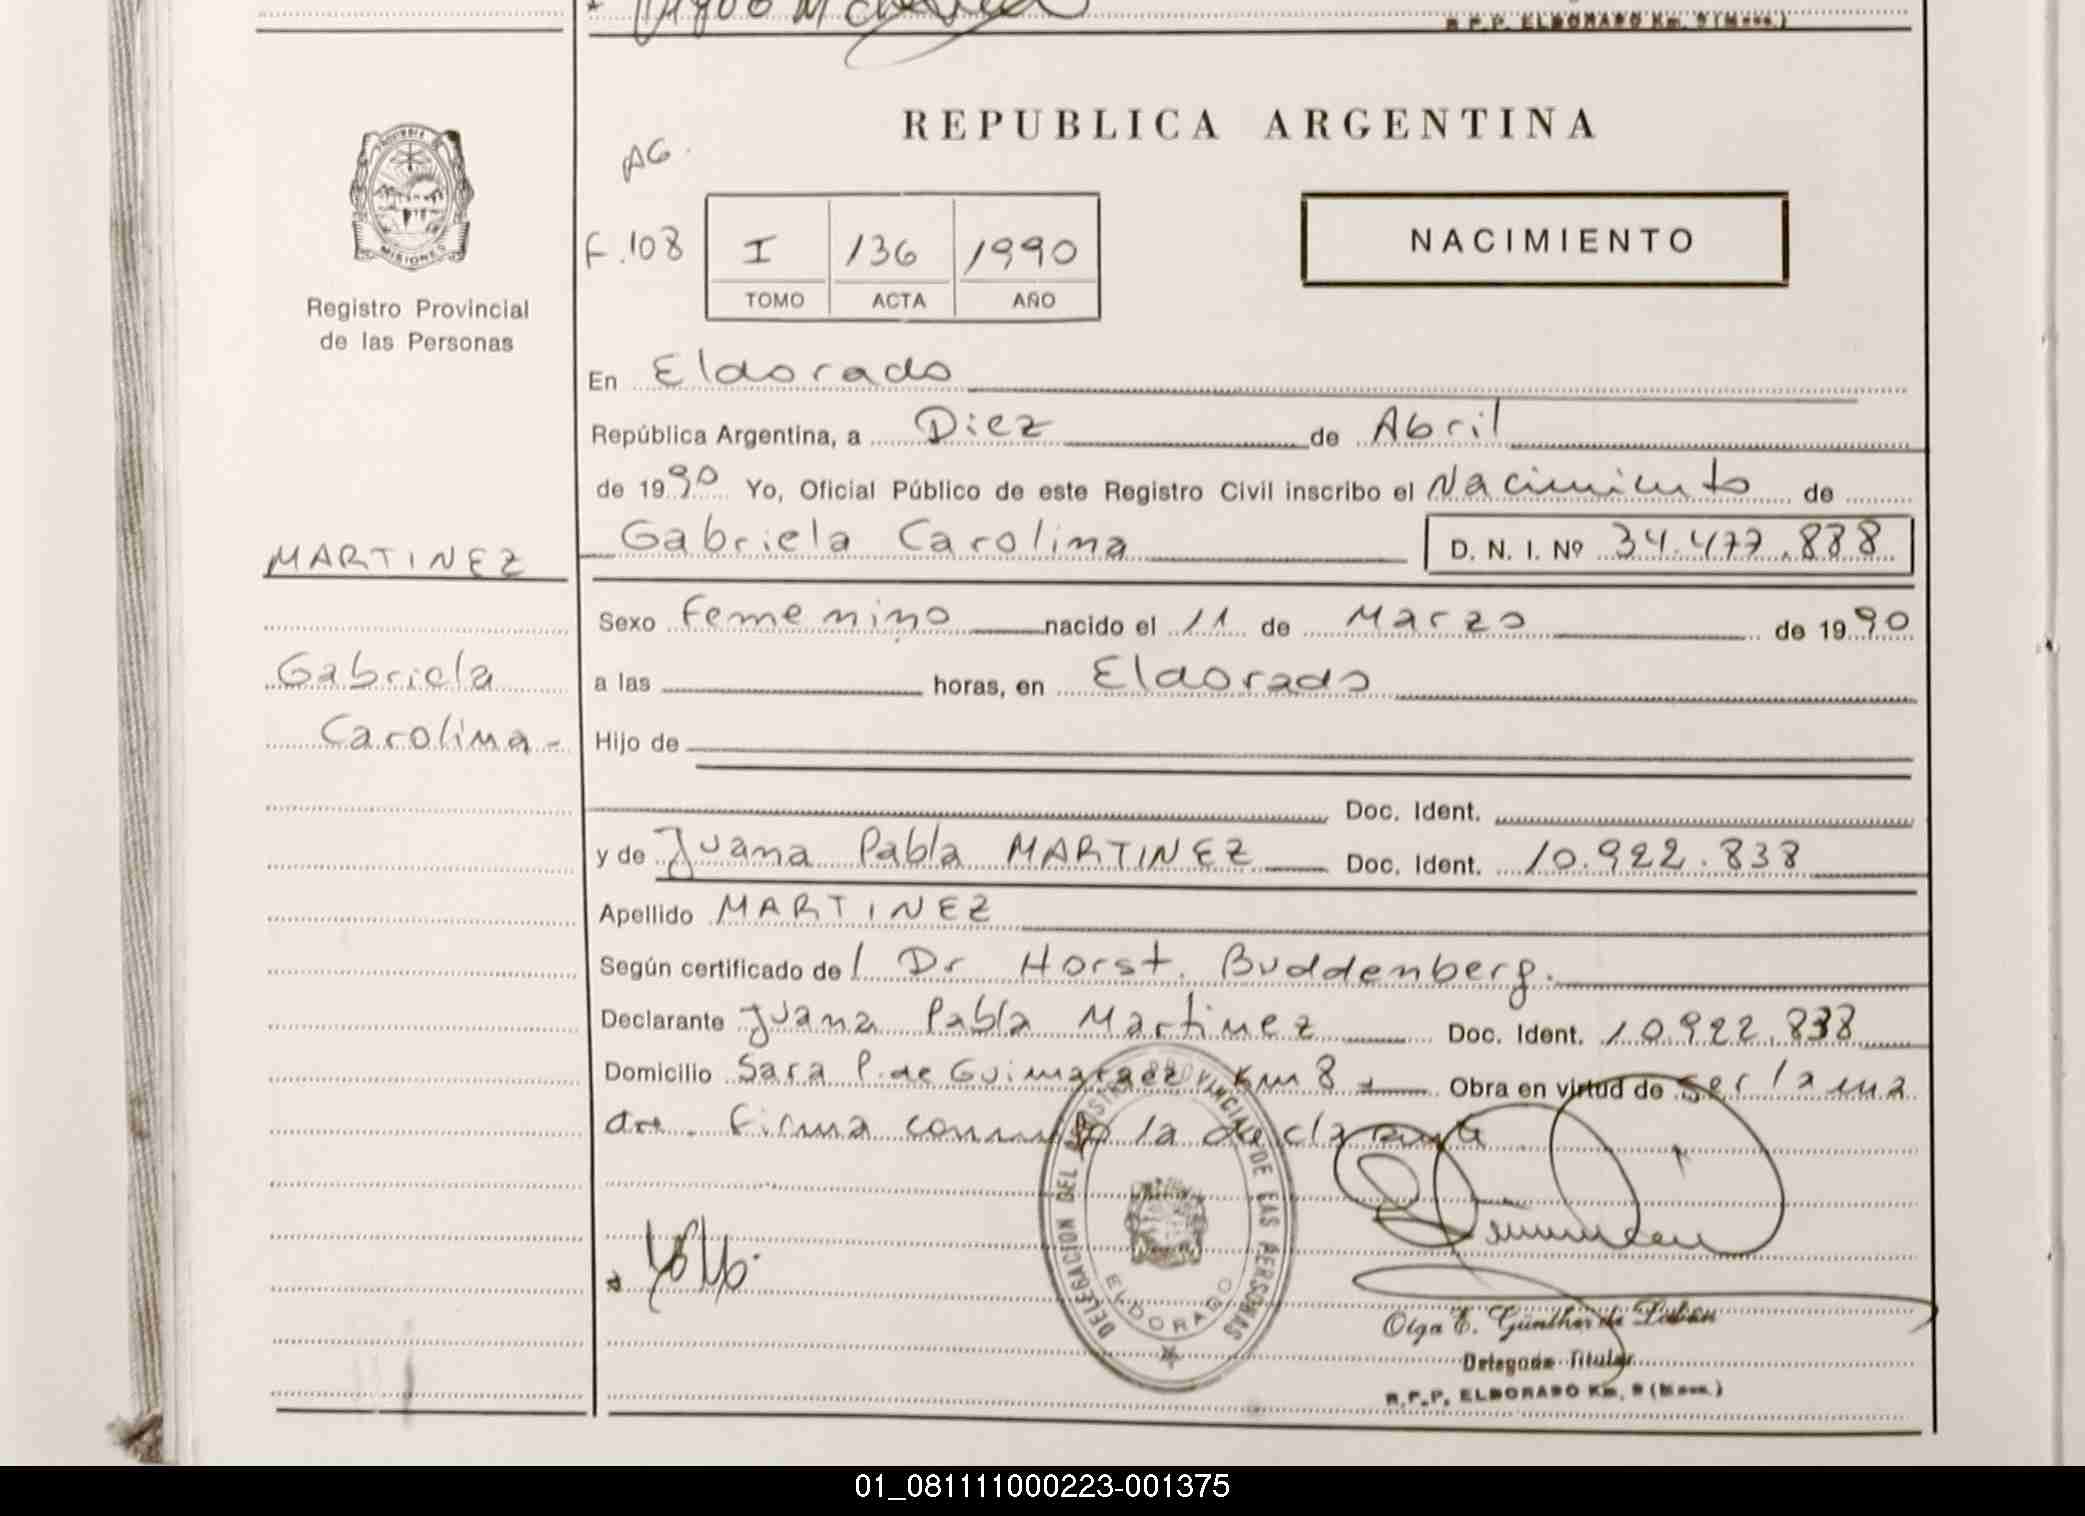 R.P.P. ELDORADO Km. 9 (Mnes.)
PROVINCIA
MISIONES
Registro Provincial
de las Personas
REPUBLICA ARGENTINA
AG.
F.108
I 136 1990
TOMO ACTA AÑO
NACIMIENTO
En Eldorado
República Argentina, a Diez de Abril
de 1990 Yo, Oficial Público de este Registro Civil inscribo el Nacimiento de
Gabriela Carolina D. N. I. Nº 34.477.838
MARTINEZ
Sexo Femenino nacido el 11 de Marzo de 1990
Gabriela
a las horas, en Eldorado
Carolina-
Hijo de
Doc. Ident.
y de Juana Pabla MARTINEZ Doc. Ident. 10.922.838
Apellido MARTINEZ
Según certificado de l Dr Horst. Buddenberg.
Declarante Juana Pabla Martinez Doc. Ident. 10.922.838
Domicilio Sara P. de Guimaraez Km 8 Obra en virtud de ser la ma
dre. Firma conmigo la declarante
DELEGACION DEL REGISTRO PROVINCIAL DE LAS PERSONAS
ELDORADO
Olga E. Günther de
Delegada Titular
R.P.P. ELDORADO Km. 9 (Mnes.)
01_081111000223-001375